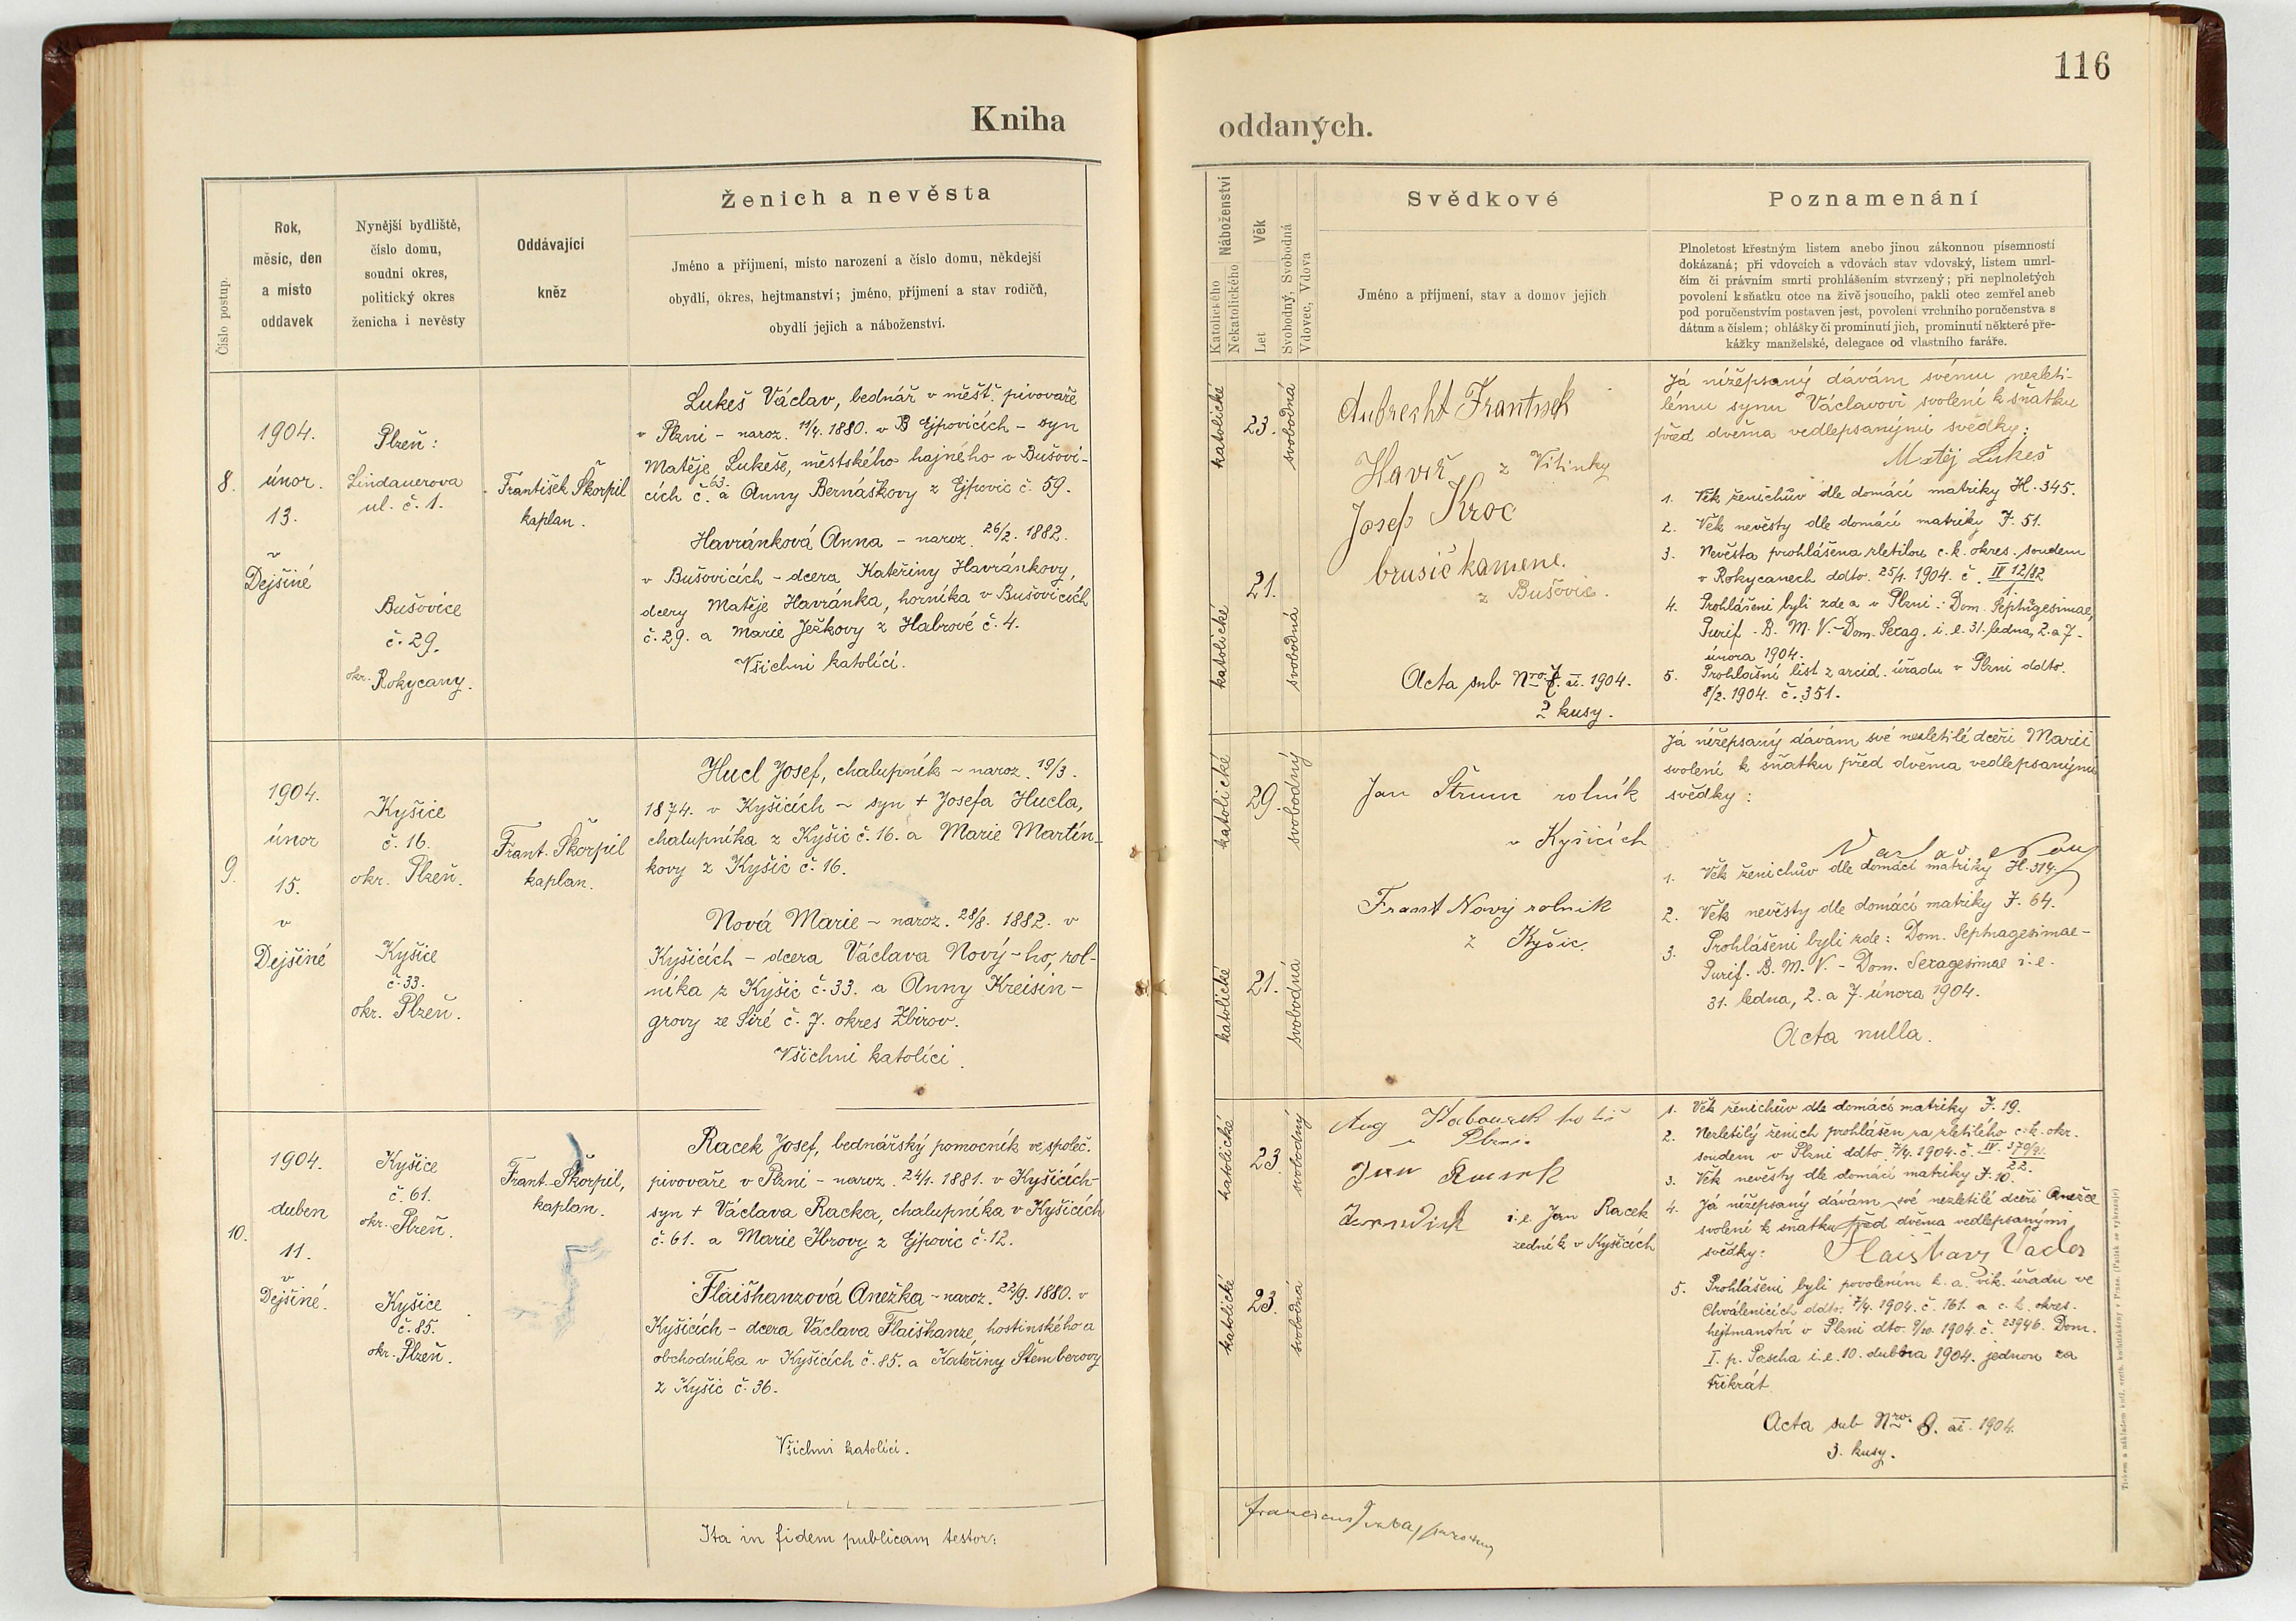 116
Kniha
oddaných.
Číslo postup.
Rok,
měsíc, den
a místo
oddavek
Nynější bydliště,
číslo domu,
soudní okres,
politický okres
ženicha i nevěsty
Oddávající
kněz
Ženich a nevěsta
Jméno a příjmení, místo narození a číslo domu, někdejší
obydlí, okres, hejtmanství; jméno, příjmení a stav rodičů,
obydlí jejich a náboženství.
8.
1904.
únor.
13.
v
Dejšině
Plzeň:
Lindauerova
ul. č. 1.
Bušovice
č. 29.
okr. Rokycany.
František Škorpil
kaplan.
Lukeš Václav, bednář v měšť. pivovaře
v Plzni - naroz. 11/4. 1880. v Ejpovicích - syn
Matěje Lukeše, městského hajného v Bušovi-
cích č. 63. a Anny Bernáškovy z Ejpovic č. 59.
Havránková Anna - naroz. 26/2. 1882.
v Bušovicích - dcera Kateřiny Havránkovy,
dcery Matěje Havránka, horníka v Bušovicích
č. 29. a Marie Ježkovy z Habrové č. 4.
Všichni katolíci.
9.
1904.
únor
15.
v
Dejšině
Kyšice
č. 16.
okr. Plzeň.
Kyšice
č. 33.
okr. Plzeň.
Frant. Škorpil
kaplan.
Hucl Josef, chalupník - naroz. 19/3.
1874. v Kyšicích - syn + Josefa Hucla,
chalupníka z Kyšic č. 16. a Marie Martín-
kovy z Kyšic č. 16.
Nová Marie - naroz. 28/8. 1882. v
Kyšicích - dcera Václava Nový-ho, rol-
níka z Kyšic č. 33. a Anny Kreisin-
grovy ze Siré č. 7. okres Zbirov.
Všichni katolíci.
10.
1904.
duben
11.
v
Dejšině.
Kyšice
č. 61.
okr. Plzeň.
Kyšice
č. 85.
okr. Plzeň.
Frant. Škorpil,
kaplan.
Racek Josef, bednářský pomocník ve společ.
pivovaře v Plzni - naroz. 24/1. 1881. v Kyšicích -
syn + Václava Racka, chalupníka v Kyšicích
č. 61. a Marie Hrovy z Ejpovic č. 12.
Flaišhanzová Anežka - naroz. 22/9. 1880. v
Kyšicích - dcera Václava Flaišhanze, hostinského a
obchodníka v Kyšicích č. 85. a Kateřiny Štemberovy
z Kyšic č. 36.
Všichni katolíci.
Ita in fidem publicam testor:
Katolického
Nekatolického
Náboženství
Let
Věk
Svobodný, Svobodná
Vdovec, Vdova
Svědkové
Jméno a příjmení, stav a domov jejich
Poznamenání
Plnoletost křestným listem anebo jinou zákonnou písemností
dokázaná; při vdovcích a vdovách stav vdovský, listem umrl-
čím či právním smrti prohlášením stvrzený; při neplnoletých
povolení k sňatku otce na živě jsoucího, pakli otec zemřel aneb
pod poručenstvím postaven jest, povolení vrchního poručenstva s
dátum a číslem; ohlášky či prominutí jich, prominutí některé pře-
kážky manželské, delegace od vlastního faráře.
katolické
23.
svobodná
katolické
21.
svobodná
Aubrecht František
Havíř z Vitinky
Josef Kroc
brusič kamene.
z Bušovic.
Acta sub Nro. 7. ai. 1904.
2 kusy.
Já nížepsaný dávám svému nezleti-
lému synu Václavovi svolení k sňatku
před dvěma vedlepsanými svědky:
Matěj Lukeš
1. Věk ženichův dle domácí matriky H. 345.
2. Věk nevěsty dle domácí matriky J. 51.
3. Nevěsta prohlášena zletilou c. k. okres. soudem
v Rokycanech ddto. 25/1. 1904. č. II 12/82
1.
4. Prohlášeni byli zde a v Plzni: Dom. Septuagesimae,
Purif. B. M. V. - Dom. Sexag. i. e. 31. ledna, 2. a 7.
února 1904.
5. Prohlášní list z arcid. úřadu v Plzni ddto.
8/2. 1904. č. 351.
katolické
29.
svobodný
katolické
21.
svobodná
Jan Štrunc rolník
v Kyšicích
Frant Nový rolnik
z Kyšic.
Já nížepsaný dávám své nezletilé dceři Marii
svolení k sňatku před dvěma vedlepsanými
svědky:
1. Věk ženichův dle domácí matriky H. 314.
2. Věk nevěsty dle domácí matriky J. 64.
3. Prohlášeni byli zde: Dom. Septuagesimae -
Purif. B. M. V. - Dom. Sexagesimae i. e.
31. ledna, 2. a 7. února 1904.
Acta nulla.
katolické
23.
svobodný
katolické
23.
svobodná
Aug
v Plzni
Jan
i. e. Jan Racek
zedník v Kyšicích
1. Věk ženichův dle domácí matriky J. 19.
2. Nezletilý ženich prohlášen za zletilého c. k. okr.
soudem v Plzni ddto. 7/4. 1904. č. IV. 370/21.
22.
3. Věk nevěsty dle domácí matriky J. 10.
4. Já nížepsaný dávám své nezletilé dceři Anežce
svolení k sňatku před dvěma vedlepsanými
svědky:
5. Prohlášeni byli povolením b. a. vik. úřadu ve
Chválenicích ddto: 7/4. 1904. č. 161. a c. k. okres.
hejtmanství v Plzni dto. 9/10. 1904. č. 23946. Dom.
I. p. Pascha i. e. 10. dubna 1904. jednou za
třikrát.
Acta sub Nro. 8. ai. 1904.
3. kusy.